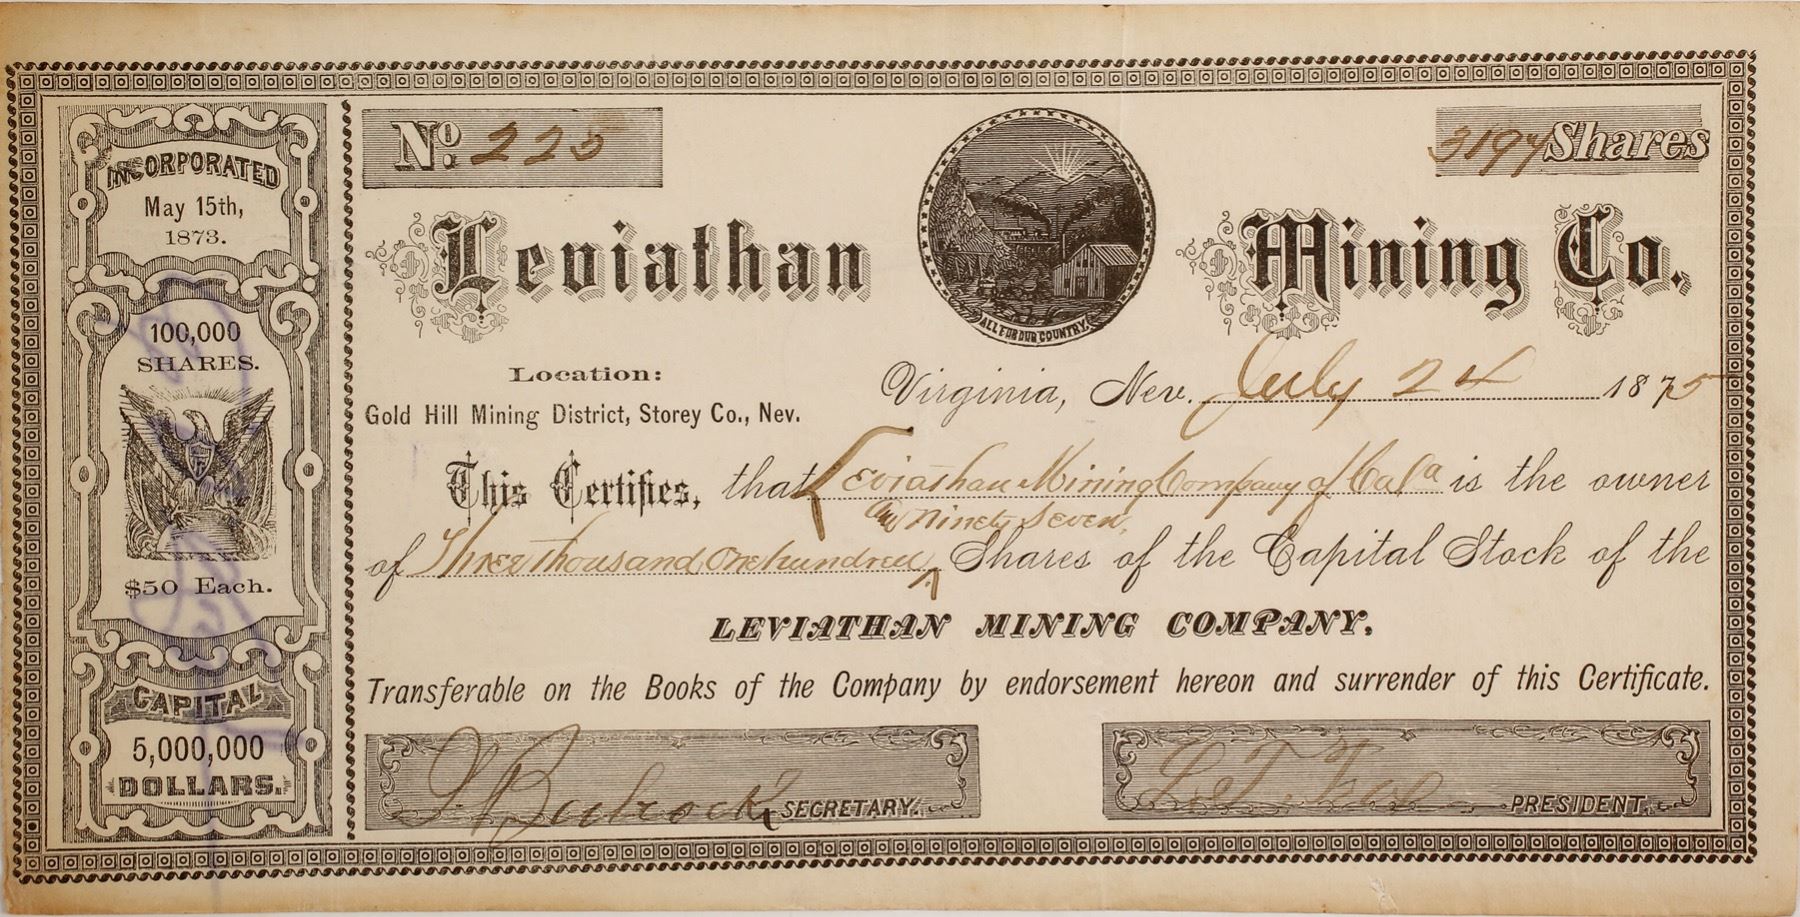 INCORPORATED
May 15th,
1873.
100,000
SHARES.
$50 Each.
CAPITAL
5,000,000
DOLLARS.
No. 225
3197 Shares
Leviathan Mining Co.
ALL FOR OUR COUNTRY.
Location:
Gold Hill Mining District, Storey Co., Nev.
Virginia, Nev. July 24 1875
This Certifies, that Leviathan Mining Company of Cala is the owner
and Ninety Seven
of Three thousand One hundred ^ Shares of the Capital Stock of the
LEVIATHAN MINING COMPANY,
Transferable on the Books of the Company by endorsement hereon and surrender of this Certificate.
SECRETARY.
PRESIDENT.